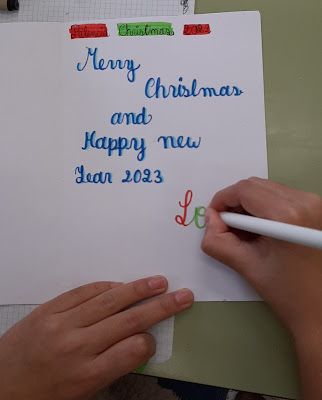 Valencia Christmas 2022
Merry
Christmas
and
Happy new
Year 2023
Lo